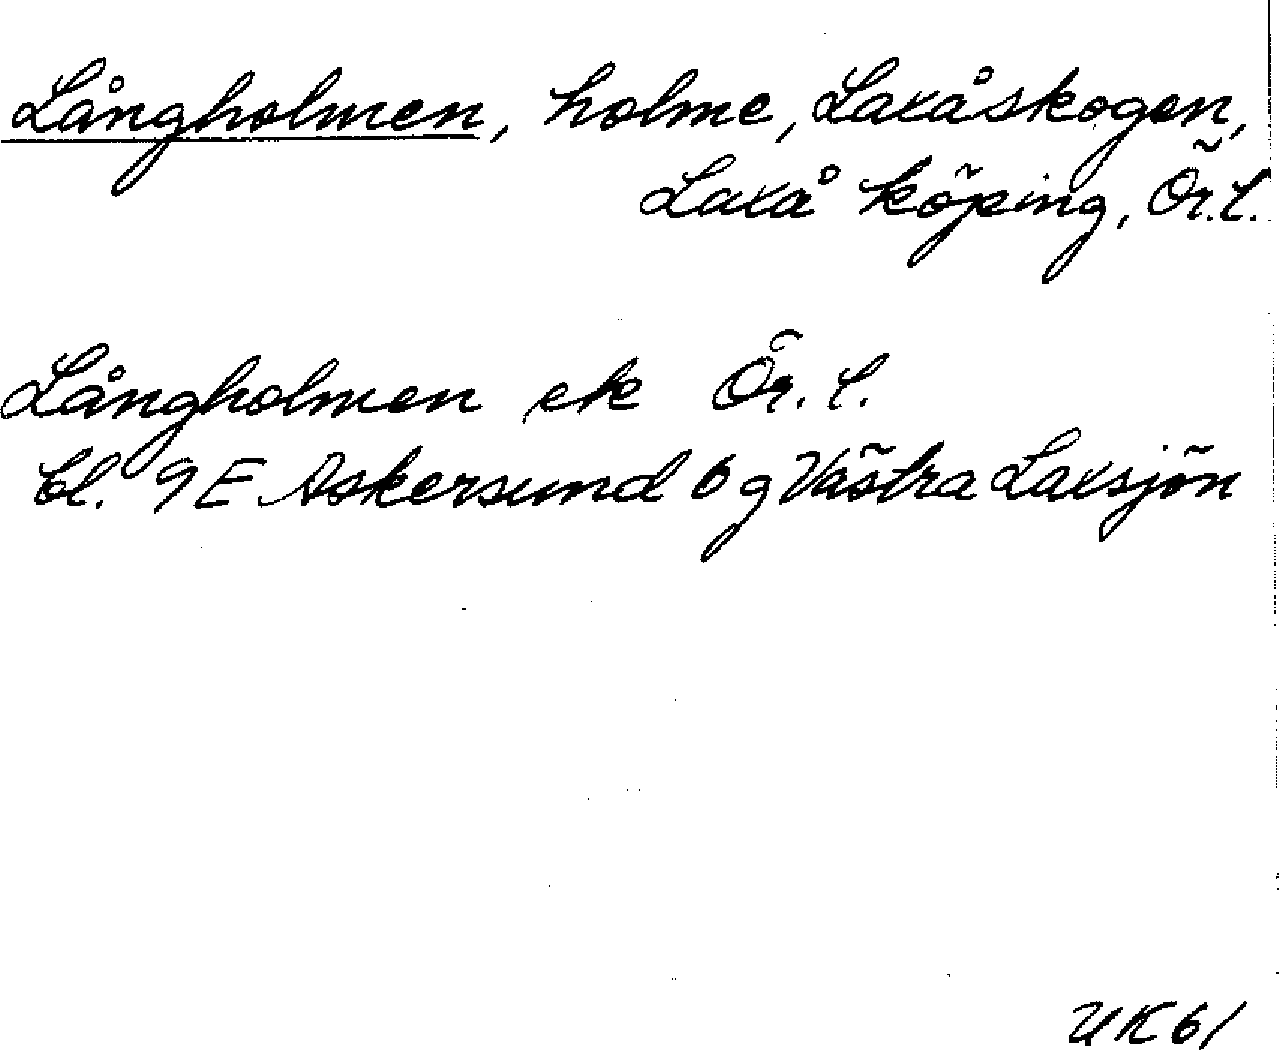 Långholmen, holme, Laxåskogen,
Laxå köping, Ör.l.
Långholmen ek Ör.l.
bl. 9E Askersund 6g Västra Laxsjön
UK61